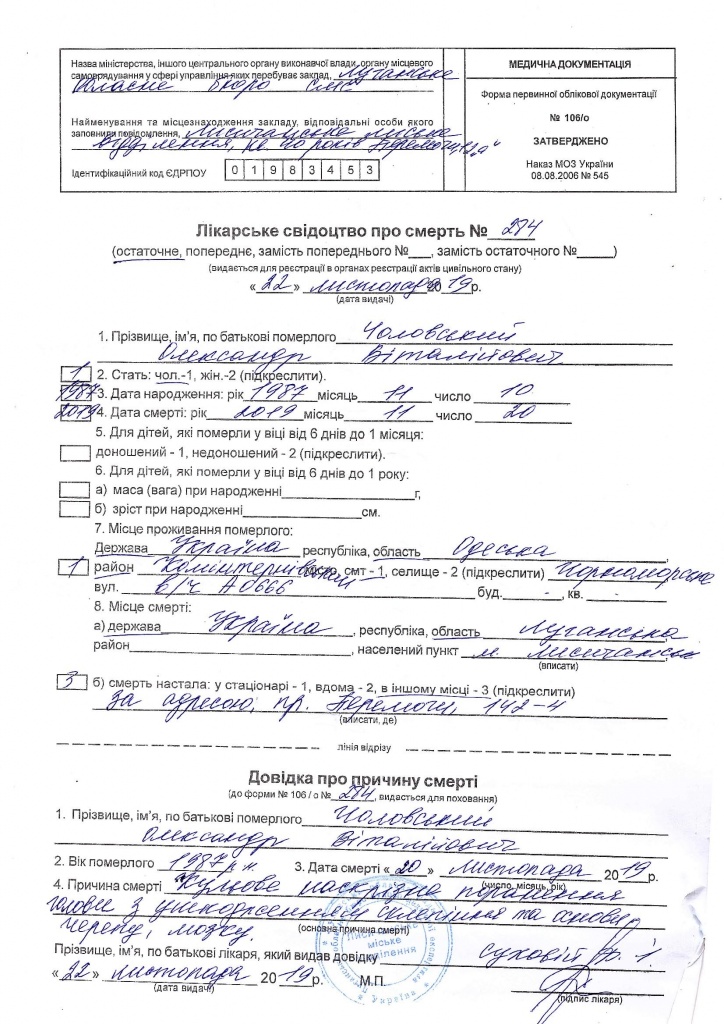 Назва міністерства, іншого центрального органу виконавчої влади, органу місцевого
самоврядування у сфері управління яких перебуває заклад, Луганське
обласне бюро СМЕ
Найменування та місцезнаходження закладу, відповідальні особи якого
заповнили повідомлення, Лисичанське міське
відділення, кв. 40 років Перемоги,
Ідентифікаційний код ЄДРПОУ 0 1 9 8 3 4 5 3
МЕДИЧНА ДОКУМЕНТАЦІЯ
Форма первинної облікової документації
№ 106/о
ЗАТВЕРДЖЕНО
Наказ МОЗ України
08.08.2006 № 545
Лікарське свідоцтво про смерть № 284
(остаточне, попереднє, замість попереднього №___, замість остаточного №_____)
(видається для реєстрації в органах реєстрації актів цивільного стану)
« 22 » листопада 2019р.
(дата видачі)
1. Прізвище, ім'я, по батькові померлого Чоловський
Олександр Віталійович
1 2. Стать: чол.-1, жін.-2 (підкреслити).
1987 3. Дата народження: рік 1987 місяць 11 число 10
2019 4. Дата смерті: рік 2019 місяць 11 число 20
5. Для дітей, які померли у віці від 6 днів до 1 місяця:
доношений - 1, недоношений - 2 (підкреслити).
6. Для дітей, які померли у віці від 6 днів до 1 року:
а) маса (вага) при народженні__________________г,
б) зріст при народженні__________________см.
7. Місце проживання померлого:
Держава Україна республіка, область Одеська,
1 район Комінтернівський місто, смт - 1, селище - 2 (підкреслити) Чорноморське
вул. в/ч А0666 буд. - , кв. -
8. Місце смерті:
а) держава Україна, республіка, область Луганська
район__________________, населений пункт м. Лисичанськ
(вписати)
3 б) смерть настала: у стаціонарі - 1, вдома - 2, в іншому місці - 3 (підкреслити)
за адресою, пр. Перемоги, 142-4
(вписати, де)
лінія відрізу
Довідка про причину смерті
(до форми № 106 / о № 284, видається для поховання)
1. Прізвище, ім'я, по батькові померлого Чоловський
Олександр Віталійович
2. Вік померлого 1987 р.н. 3. Дата смерті « 20 » листопада 2019р.
(число, місяць, рік)
4. Причина смерті Кульове наскрізне поранення
голови з ушкодженням склепіння та основи
черепу, мозку.
(основна причина смерті)
Прізвище, ім'я, по батькові лікаря, який видав довідку Суховій
« 22 » листопада 2019р. М.П.
(дата видачі)
(підпис лікаря)
міське
відділення
Україна